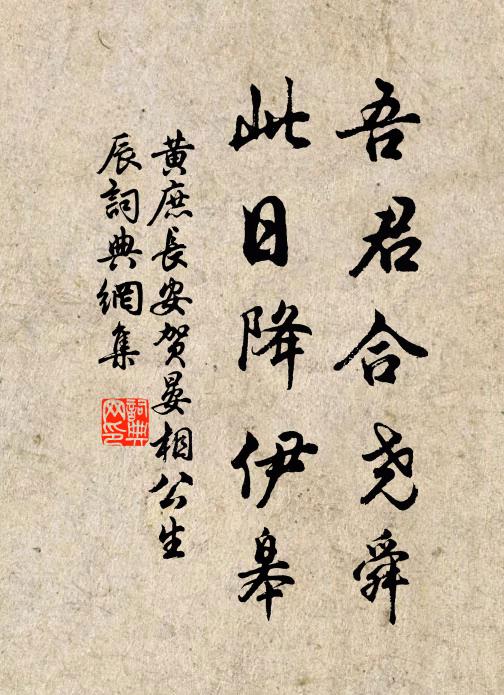 吾君合尧舜
此日降伊皋
黄庶长安贺晏相公生
辰詞典網集
詞典
网印